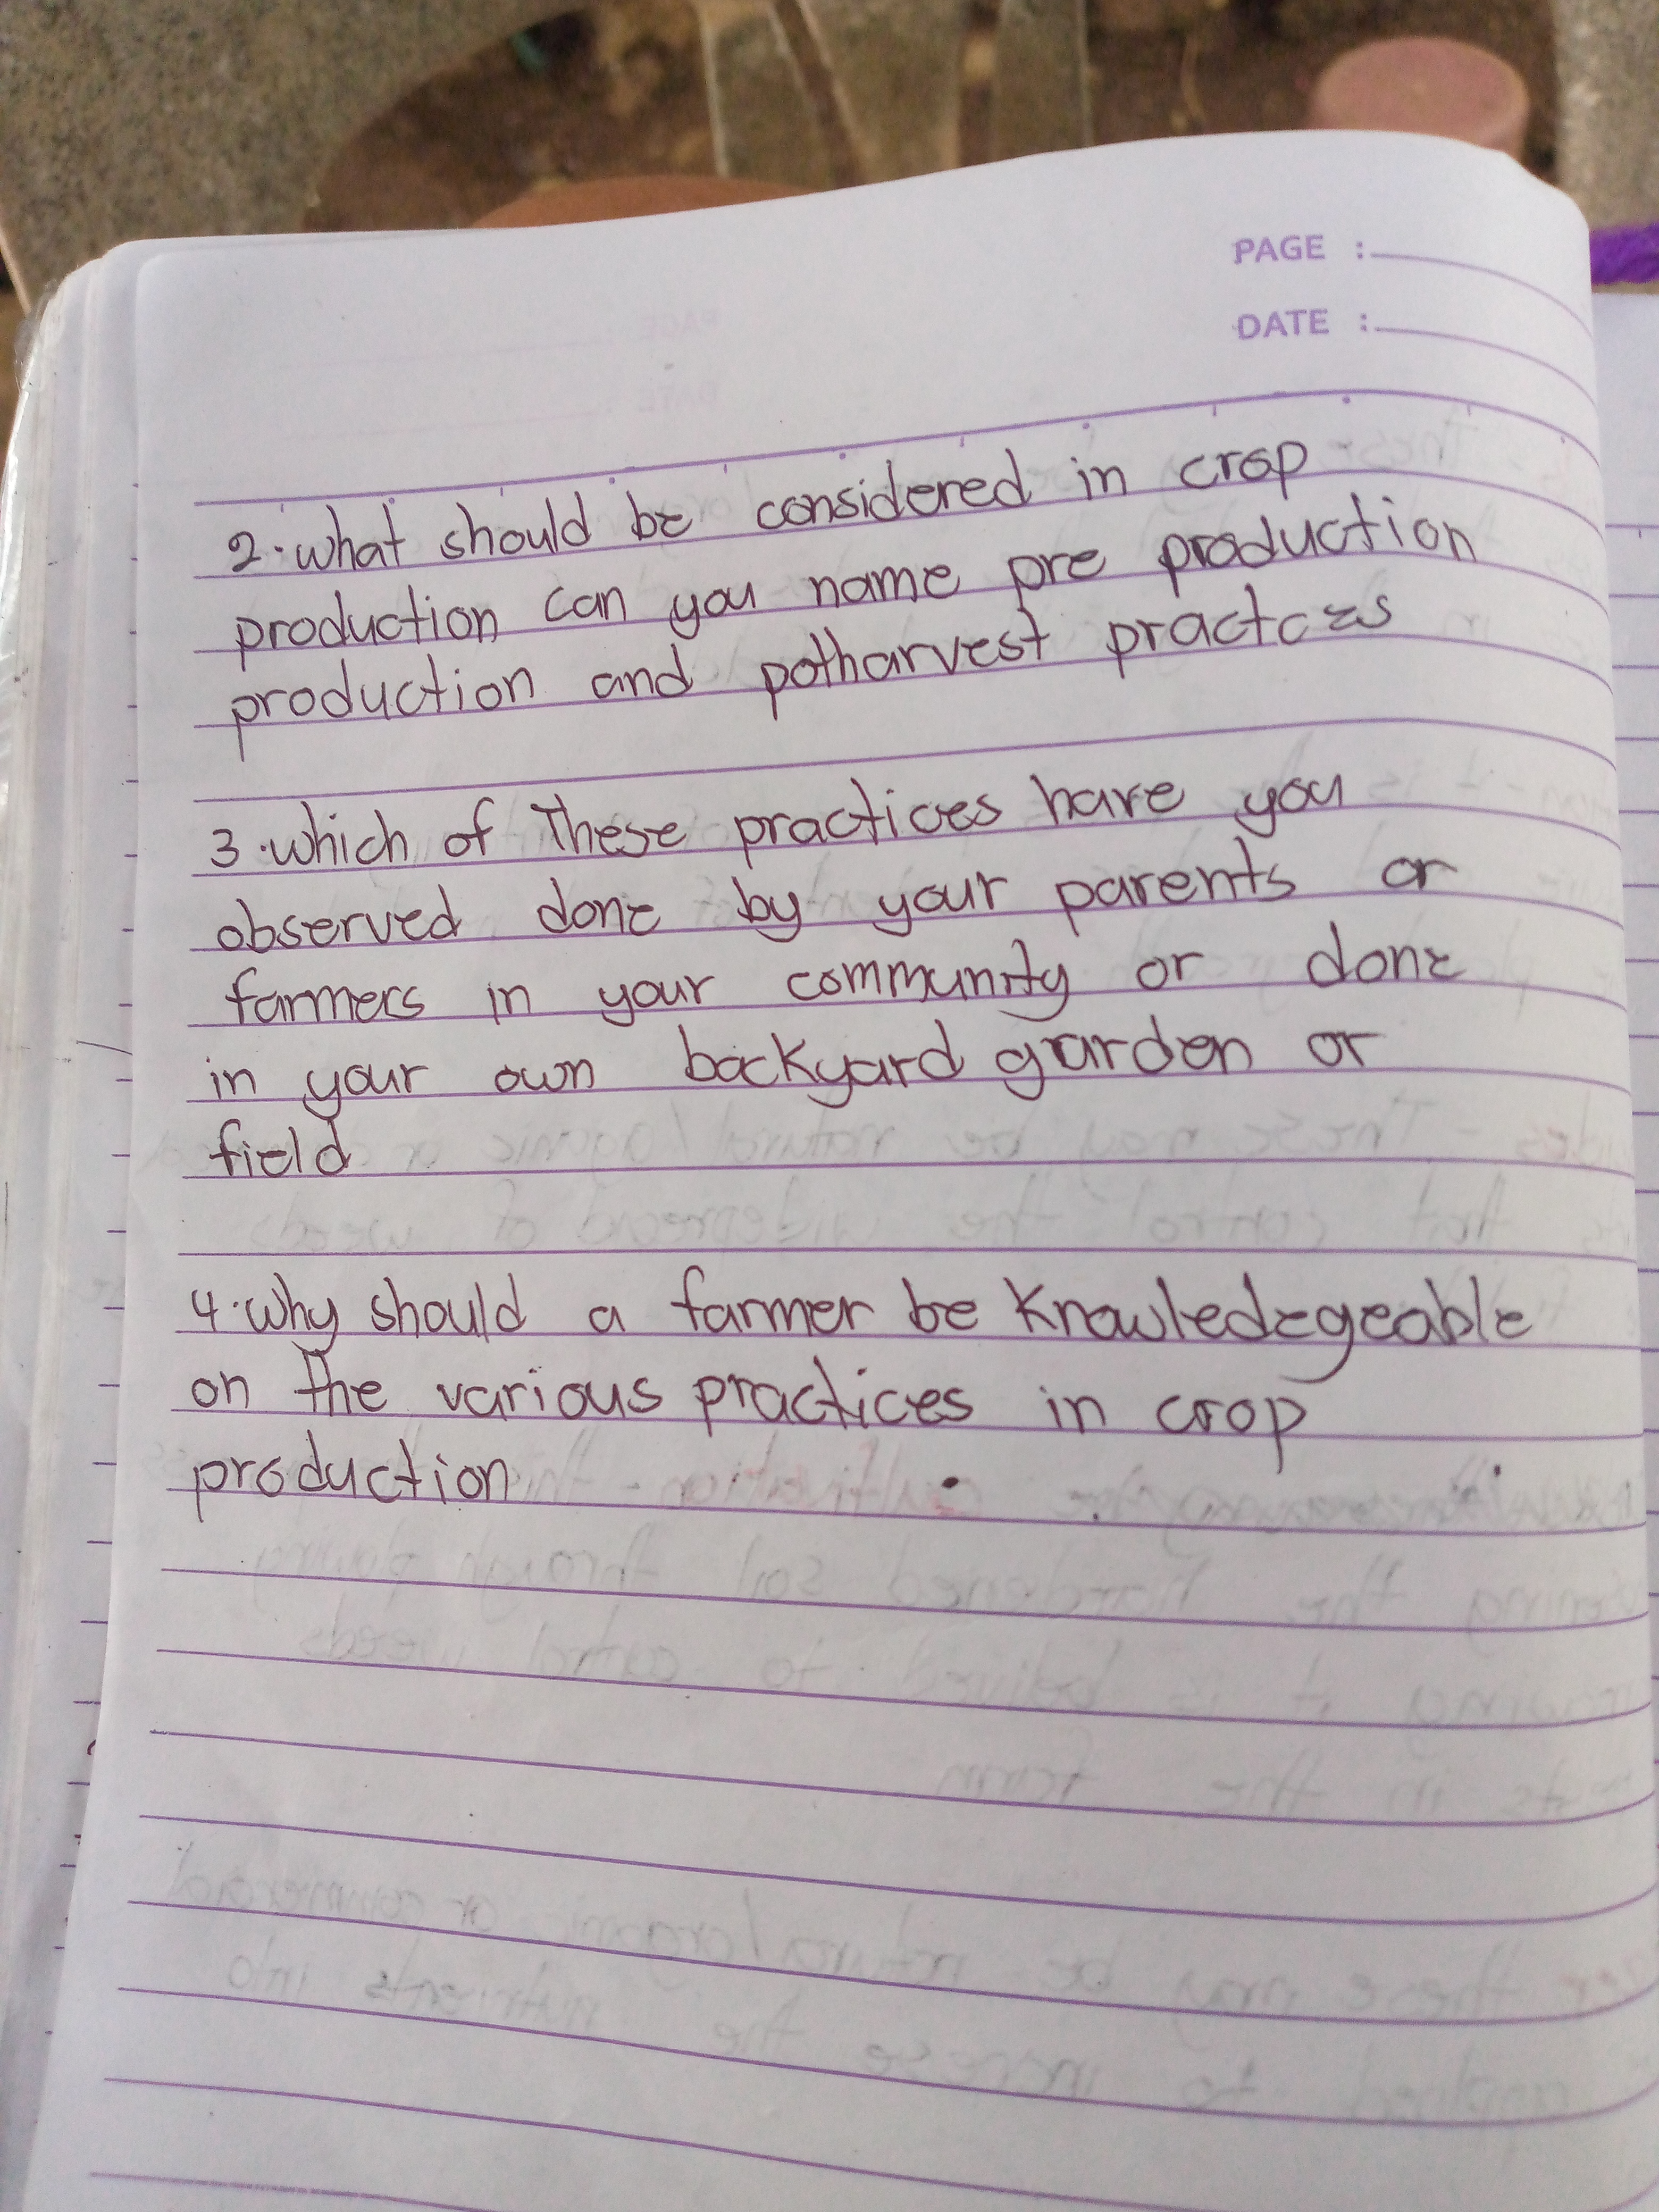 PAGE :
DATE :
2. what should be considered in crop
production can you name pre production
production and potharvest practces
3. which of These practices have you
observed done by your parents or
farmers in your community or done
in your own backyard garden or
field
4. why should a farmer be knowledegeable
on the various practices in crop
production